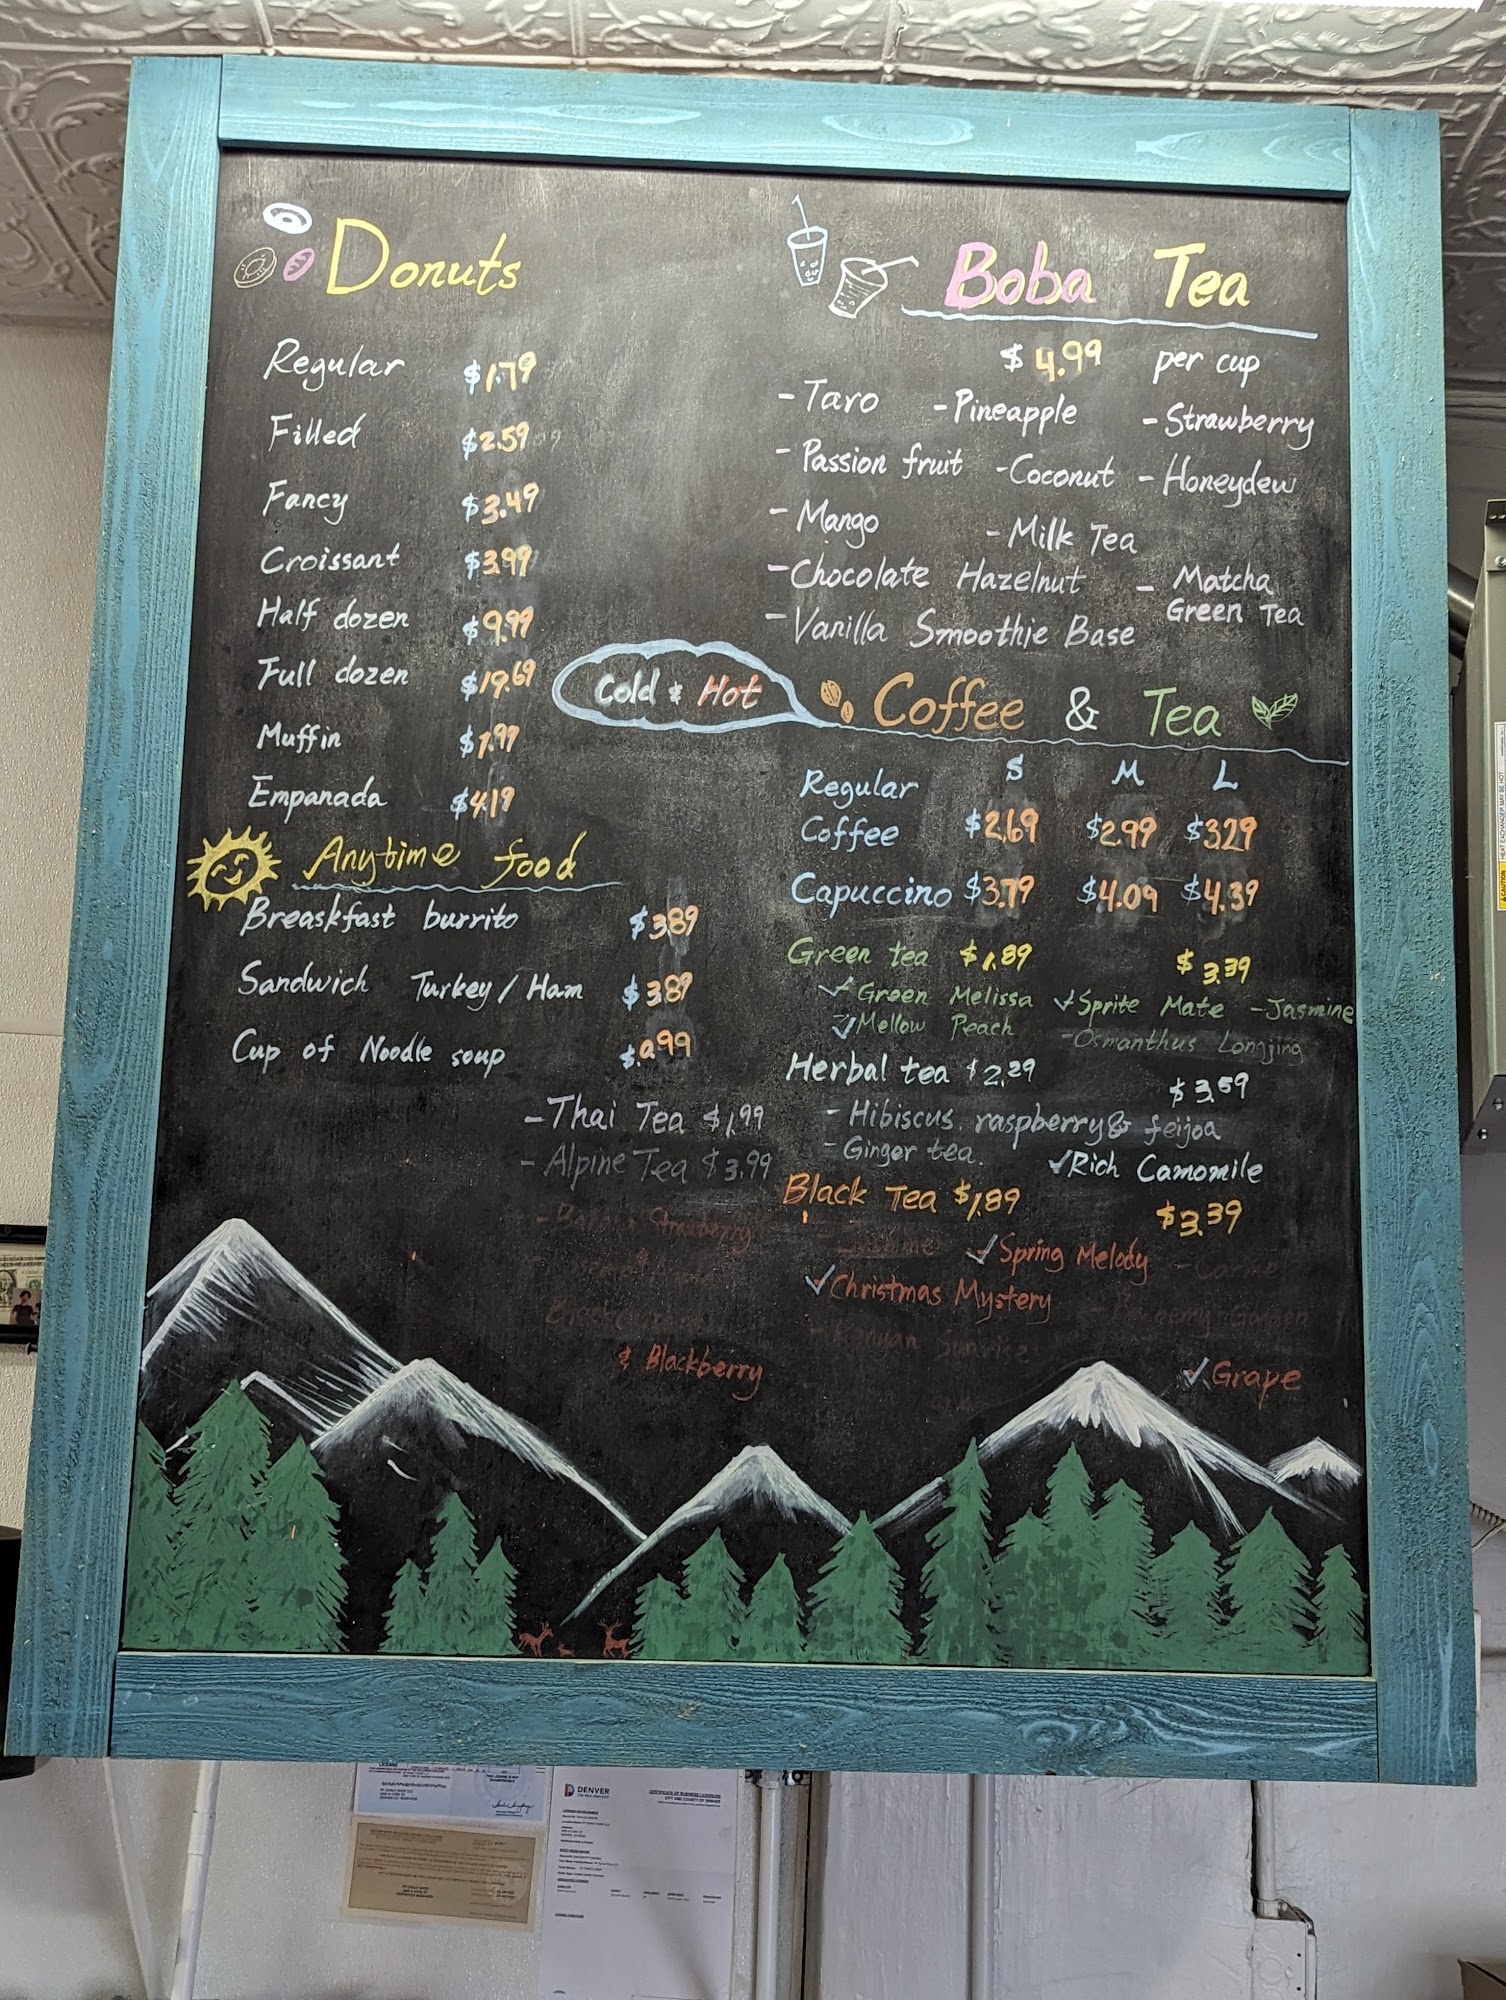 Donuts
Regular $1.79
Filled $2.59
Fancy $3.49
Croissant $3.99
Half dozen $9.99
Full dozen $19.69
Muffin $1.99
Empanada $4.19
Anytime food
Breaskfast burrito $3.89
Sandwich Turkey/Ham $3.89
Cup of Noodle soup $.0.99
Boba Tea
$4.99 per cup
-Taro -Pineapple -Strawberry
-Passion fruit -Coconut -Honeydew
-Mango -Milk Tea
-Chocolate Hazelnut -Matcha
Green Tea
-Vanilla Smoothie Base
Cold & Hot
Coffee & Tea
S M L
Regular
Coffee $2.69 $2.99 $3.29
Capuccino $3.79 $4.09 $4.39
Green tea $1.89 $3.39
Green Melissa Sprite Mate -Jasmine
Mellow Peach -Osmanthus Longjing
Herbal tea $2.29 $3.59
-Hibiscus, raspberry & feijoa
-Ginger tea. Rich Camomile
Black Tea $1.89 $3.39
Spring Melody
Christmas Mystery
-Kenyan Sunrise
Grape
-Thai Tea $1.99
-Alpine Tea $3.99
Strawberry
& Blackberry
DENVER
CERTIFICATE OF BUSINESS LICENSURE
CITY AND COUNTY OF DENVER
CAUTION
HEAT EXCHANGER MAY BE HOT